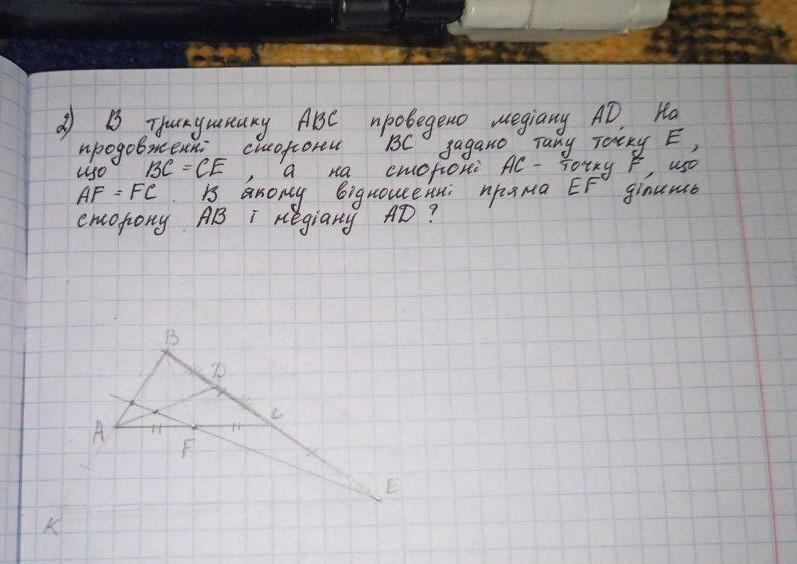 2) В трикутнику ABC проведено медіану AD. На
продовженні сторони BC задано таку точку E,
що BC = CE, а на стороні AC - точку F, що
AF = FC. В якому відношенні пряма EF ділить
сторону AB і медіану AD?
B
D
A
F
C
E
K